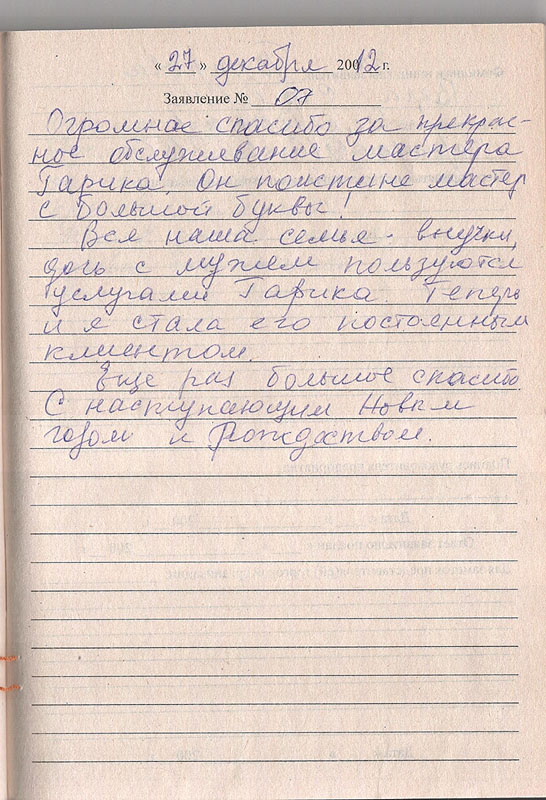 « 27 » декабря 20012 г.
Заявление № 07
Огромнае спасибо за прекрас-
ное обслуживание мастера
Гарика. Он поистине мастер
с большой буквы!
Вся наша семья - внучки,
дочь с мужем пользуются
услугами Гарика. Теперь
и я стала его постоянным
клиентом.
Еще раз большое спасибо
С наступающим Новым
годом и Рождеством.